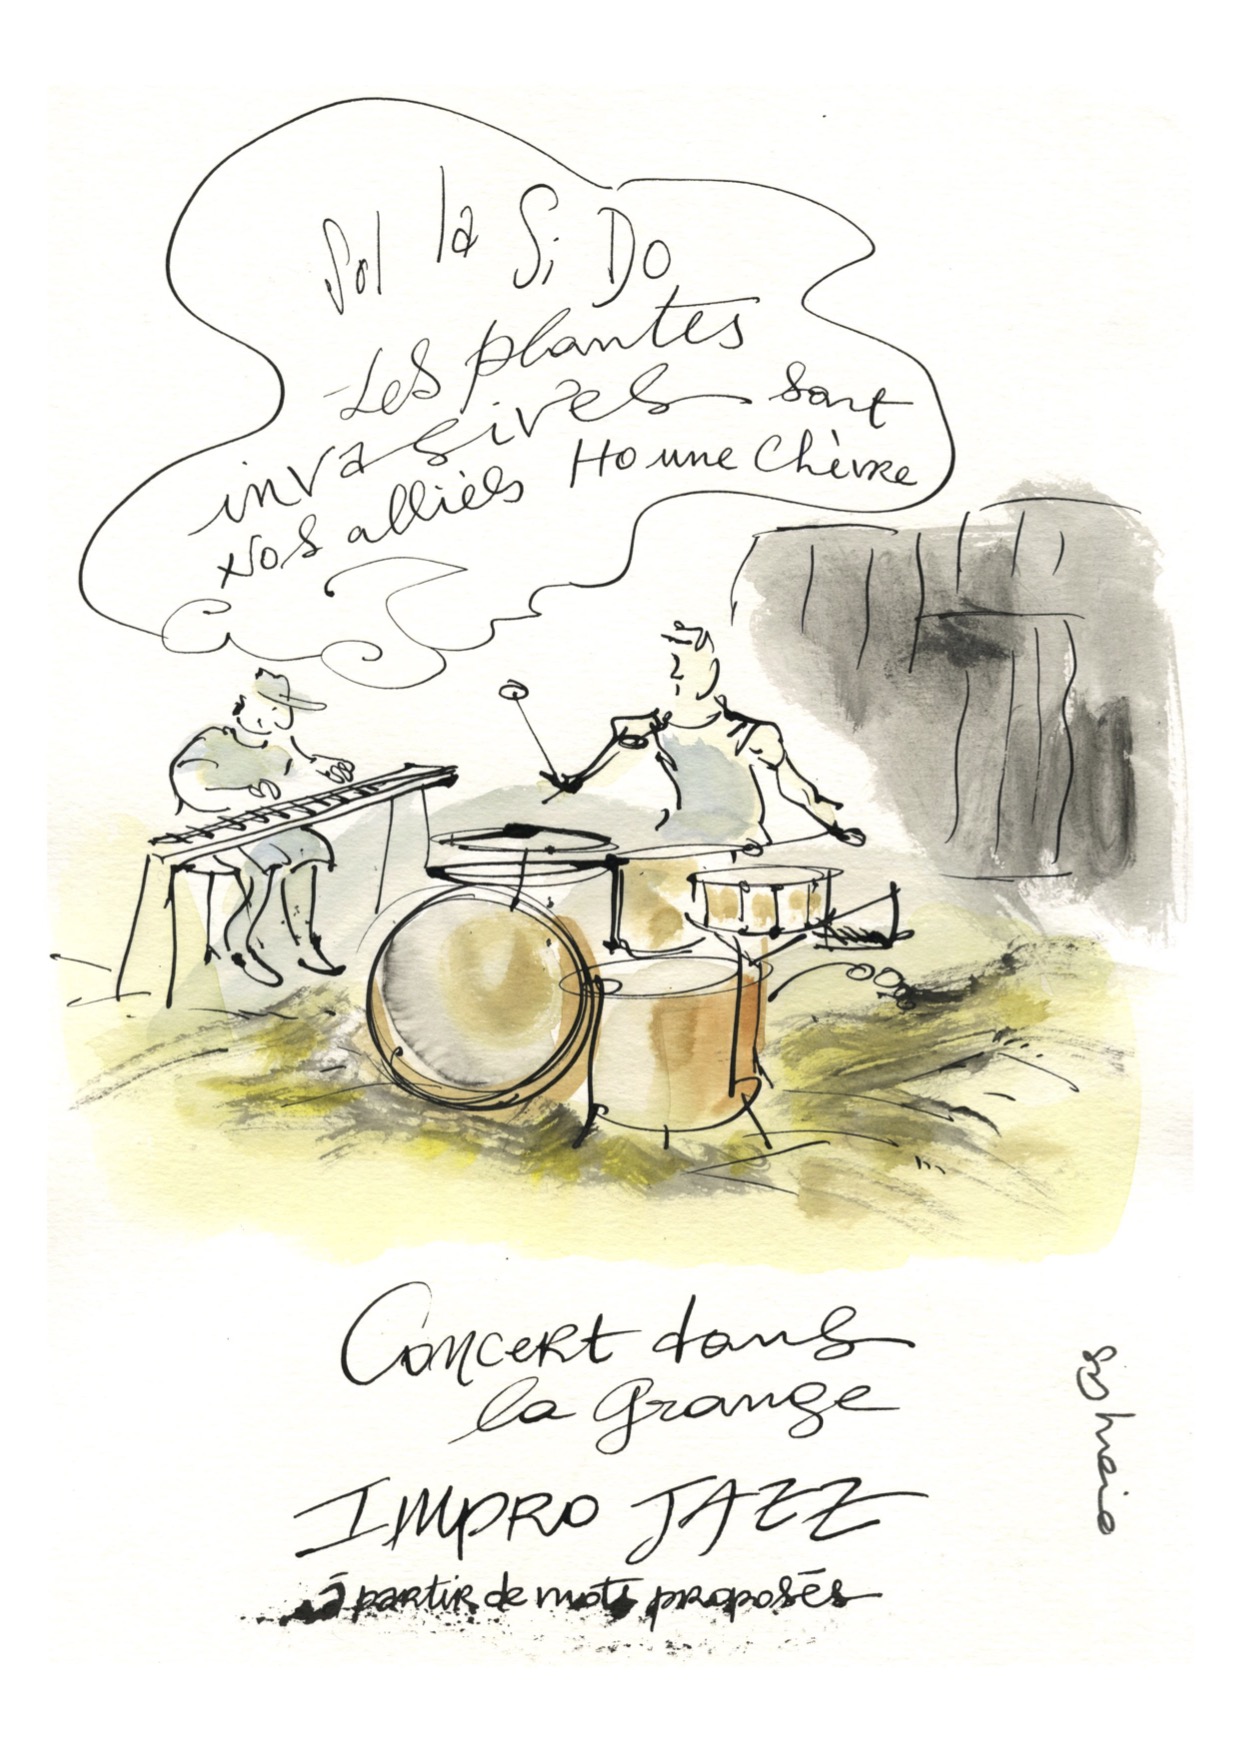 Sol la Si Do
Les plantes
invasives sont
Nos alliés Ho une Chèvre
Concert dans
la Grange
IMPRO JAZZ
à partir de mots proposés